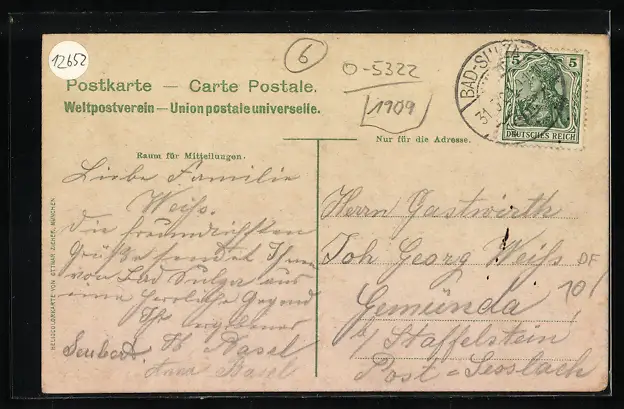 12652
6
O-5322
1909
Postkarte — Carte Postale.
Weltpostverein — Union postale universelle.
BAD-SULZA
31
5 5
DEUTSCHES REICH
Nur für die Adresse.
Raum für Mitteilungen.
HELIOCOLORKARTE VON OTTMAR ZIEHER, MÜNCHEN
Liebe Familie
Weiß.
Die freundlichsten
Grüße sendet Ihnen
von Bad Sulza aus
eine herrliche Gegend
Ihr ergebener
Basel
Basel
Herrn Gastwirth
Joh. Georg Weiß
DF
10
Gemünda
b/ Staffelstein
Post-Sesslach